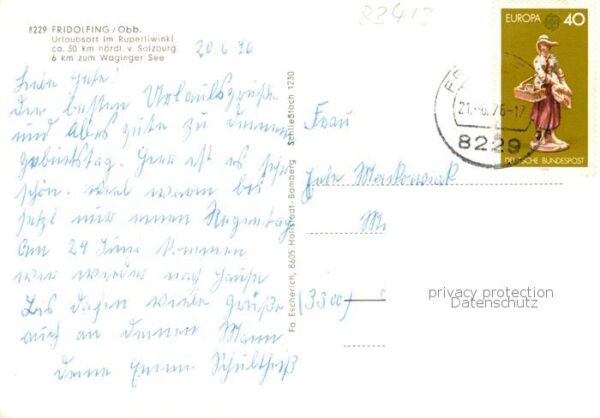 83413
8229 FRIDOLFING / Obb.
Urlaubsort im Rupertiwinkl
ca. 30 km nördl. v. Salzburg
6 km zum Waginger See
20 6. 76
Liebe Gete!
Die besten Urlaubsgrüße
und Alles gute zu deinem
Geburtstag. Hier ist es sehr
schön. viel warm bis
jetzt nur einen Regentag
Am 24 Juni kommen
wir wieder nach Hause
Bis dahin viele Grüße
auch an deinen Mann
Deine Schultheiß
Fa. Escherich, 8605 Hallstadt-Bamberg Schließfach 1230
EUROPA 40
21.-6.76-17
8229
DEUTSCHE BUNDESPOST
Frau
M
(3300)
privacy protection
Datenschutz